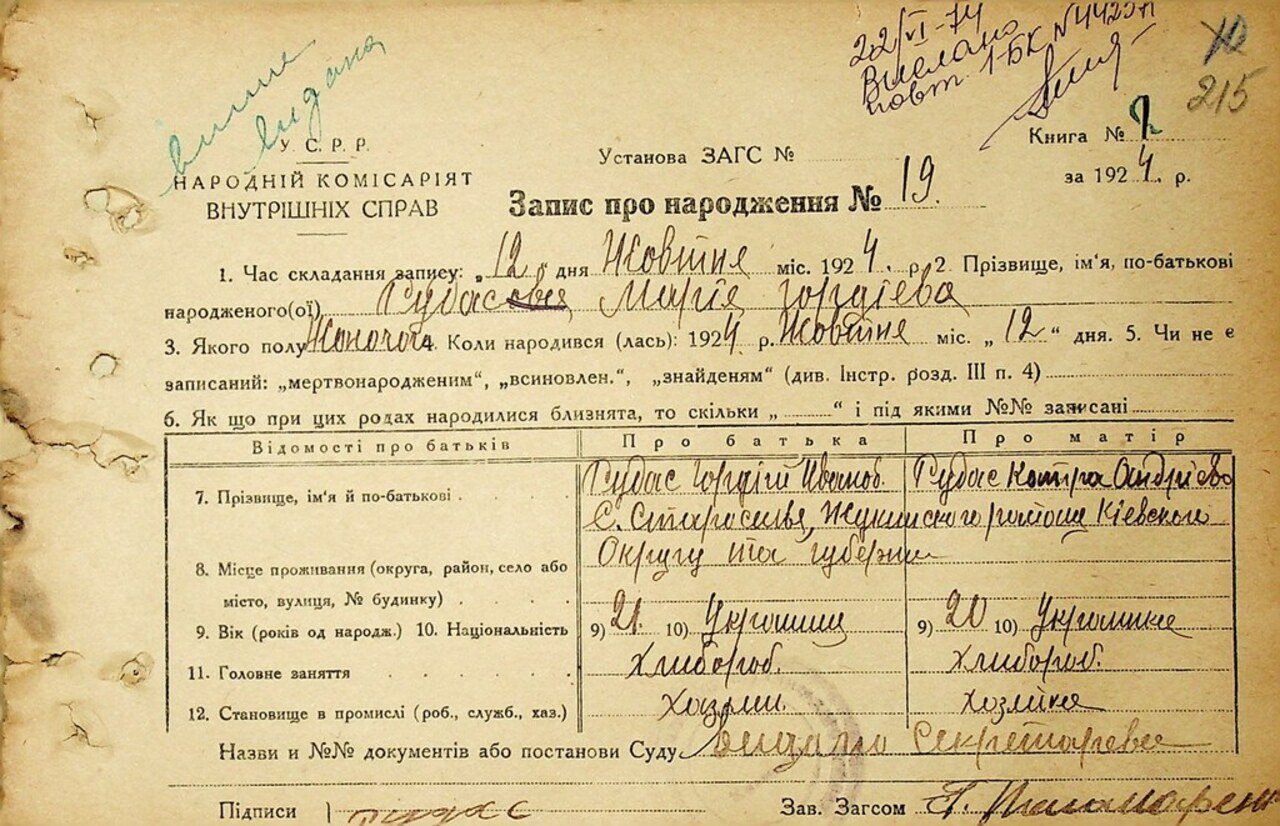 вище видана
22/VI-74
Вислано
повт. 1-БК № 4425
215
У. С. Р. Р.
НАРОДНІЙ КОМІСАРІЯТ
ВНУТРІШНІХ СПРАВ
Установа ЗАГС №
Книга №
за 1924. р.
Запис про народження № 19.
1. Час складання запису: „12“ дня Жовтня міс. 1924. р. 2. Прізвище, ім'я, по-батькові
народженого(ої) Рубас Марія Гордіева
3. Якого полу Жоночого 4. Коли народився (лась): 1924 р. Жовтня міс. „12“ дня. 5. Чи не є
записаний: „мертвонародженим“, „всиновлен.“, „знайденям“ (див. Інстр. розд. III п. 4)
6. Як що при цих родах народилися близнята, то скільки „ “ і під якими №№ записані
Відомості про батьків Про батька Про матір
7. Прізвище, ім'я й по-батькові Рубас Гордій Иванов. Рубас Котра Андрієва
С. Старосилья, Жукинского района Кіевского
Округу та губернии
8. Місце проживання (округа, район, село або
місто, вулиця, № будинку)
9. Вік (років од народж.) 10. Національність 9) 21. 10) Украинец 9) 20 10) Украинка
11. Головне заняття Хлибороб. Хлибороб.
12. Становище в промислі (роб., служб., хаз.) Хозяин. Хозяйка
Назви и №№ документів або постанови Суду
Підписи Рудас Зав. Загсом